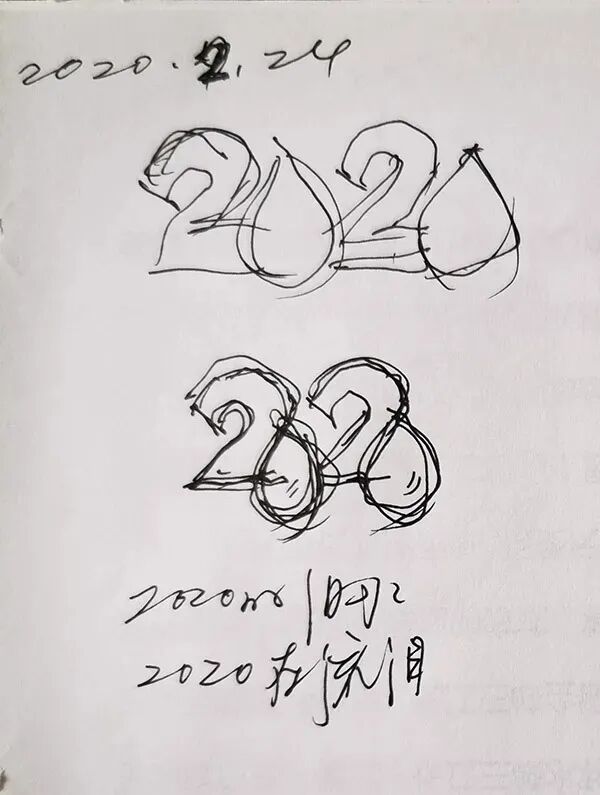 2020.2.24
2020
2020
2020
2020在流泪